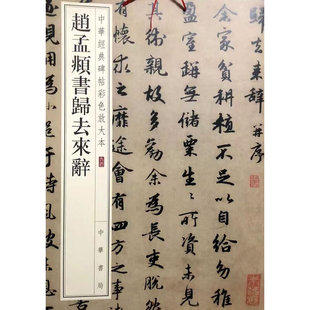 趙孟頫書歸去來辭
中華經典碑帖彩色放大本
中華書局
歸去來辭并序
余家貧耕植不足以自給幼稚
盈室缾無儲粟生生所資未見
其術親故多勸余為長吏脫然
有懷求之靡途會有四方之
于時風波未